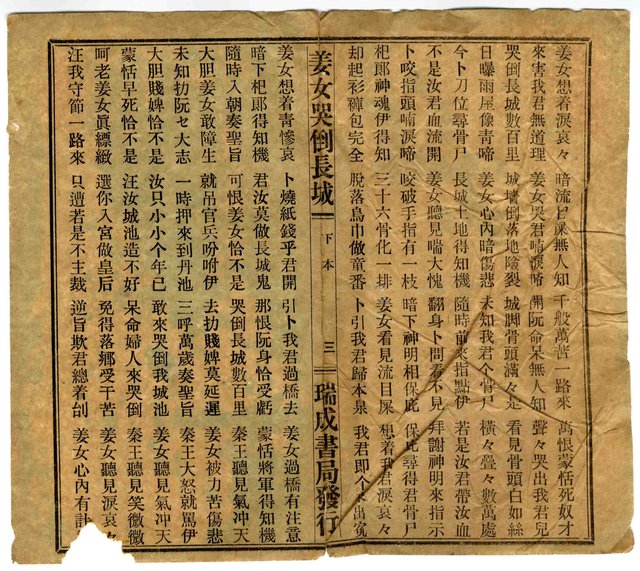 姜女想着淚哀々 暗流目屎無人知 千般萬苦一路來 萬恨蒙恬死奴才
來害我君無道理 姜女哭君喃淚啼 開阮命呆無人知 聲々哭出我君兒
哭倒長城數百里 城墻倒落地險裂 城脚骨頭滿々是 看見骨頭白如絲
日曝雨屋像青啼 姜女心內暗傷悲 未知我君个骨尸 橫々疊々數萬處
今卜刀位尋骨尸 長城土地得知機 隨時前來指點伊 若是汝君帶汝血
不是汝君血流開 姜女聽見喘大愧 翻身卜問看不見 拜謝神明來指示
卜咬指頭喃淚啼 咬破手指有一枝 暗下神明相保庇 保庇尋得君骨尸
杞郎神魂伊得知 三十六骨化一排 姜女看見流目屎 想着我君淚哀々
却起衫褲包完全 脫落烏巾做童番 卜引我君歸本泉 我君即个來出寃
姜女哭倒長城 下本 三 瑞成書局發行
姜女想着青慘哀 卜燒紙錢乎君開 引卜我君過橋去 姜女過橋有注意
暗下杞郎得知機 君汝莫做長城鬼 那恨阮身恰受虧 蒙恬將軍得知機
隨時入朝奏聖旨 可恨姜女恰不是 哭倒長城數百里 秦王聽見氣冲天
大胆姜女敢障生 就吊官兵吩咐伊 去扐賤婢莫延遲 姜女被力苦傷悲
未知扐阮乜大志 一時押來到丹池 三呼萬歲奏聖旨 秦王大怒就罵伊
大胆賤婢恰不是 汝只小小个年已 敢來哭倒我城池 秦王聽見氣冲天
蒙恬早死恰不是 汪汝城池造不好 呆命婦人來哭倒 秦王聽見笑微微
呵老姜女眞縹緻 選你入宮做皇后 免得落鄉受干苦 姜女聽見淚哀々
汪我守節一路來 只遭若是不主裁 逆旨欺君總着刣 姜女心內有計